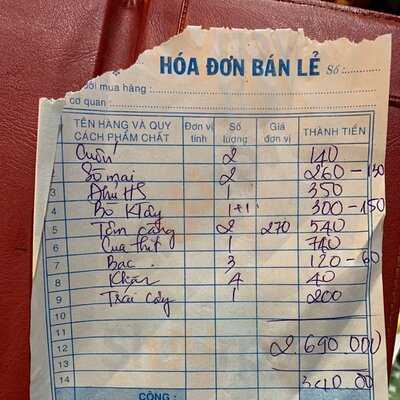 HÓA ĐƠN BÁN LẺ Số :
ời mua hàng :
cơ quan :
TÊN HÀNG VÀ QUY CÁCH PHẨM CHẤT Đơn vị tính Số lượng Giá đơn vị THÀNH TIỀN
Cuốn 2 140
Sò mai 2 260 - 130
3 1 350
4 Bò 1+1 300 - 150
5 Tôm càng 2 270 540
6 Cua thịt 1 740
7 Bạc 3 120 - 60
8 Khăn 4 40
9 Trái cây 1 200
10
11
12 2 690.000
13
14 340.00
CỘNG :